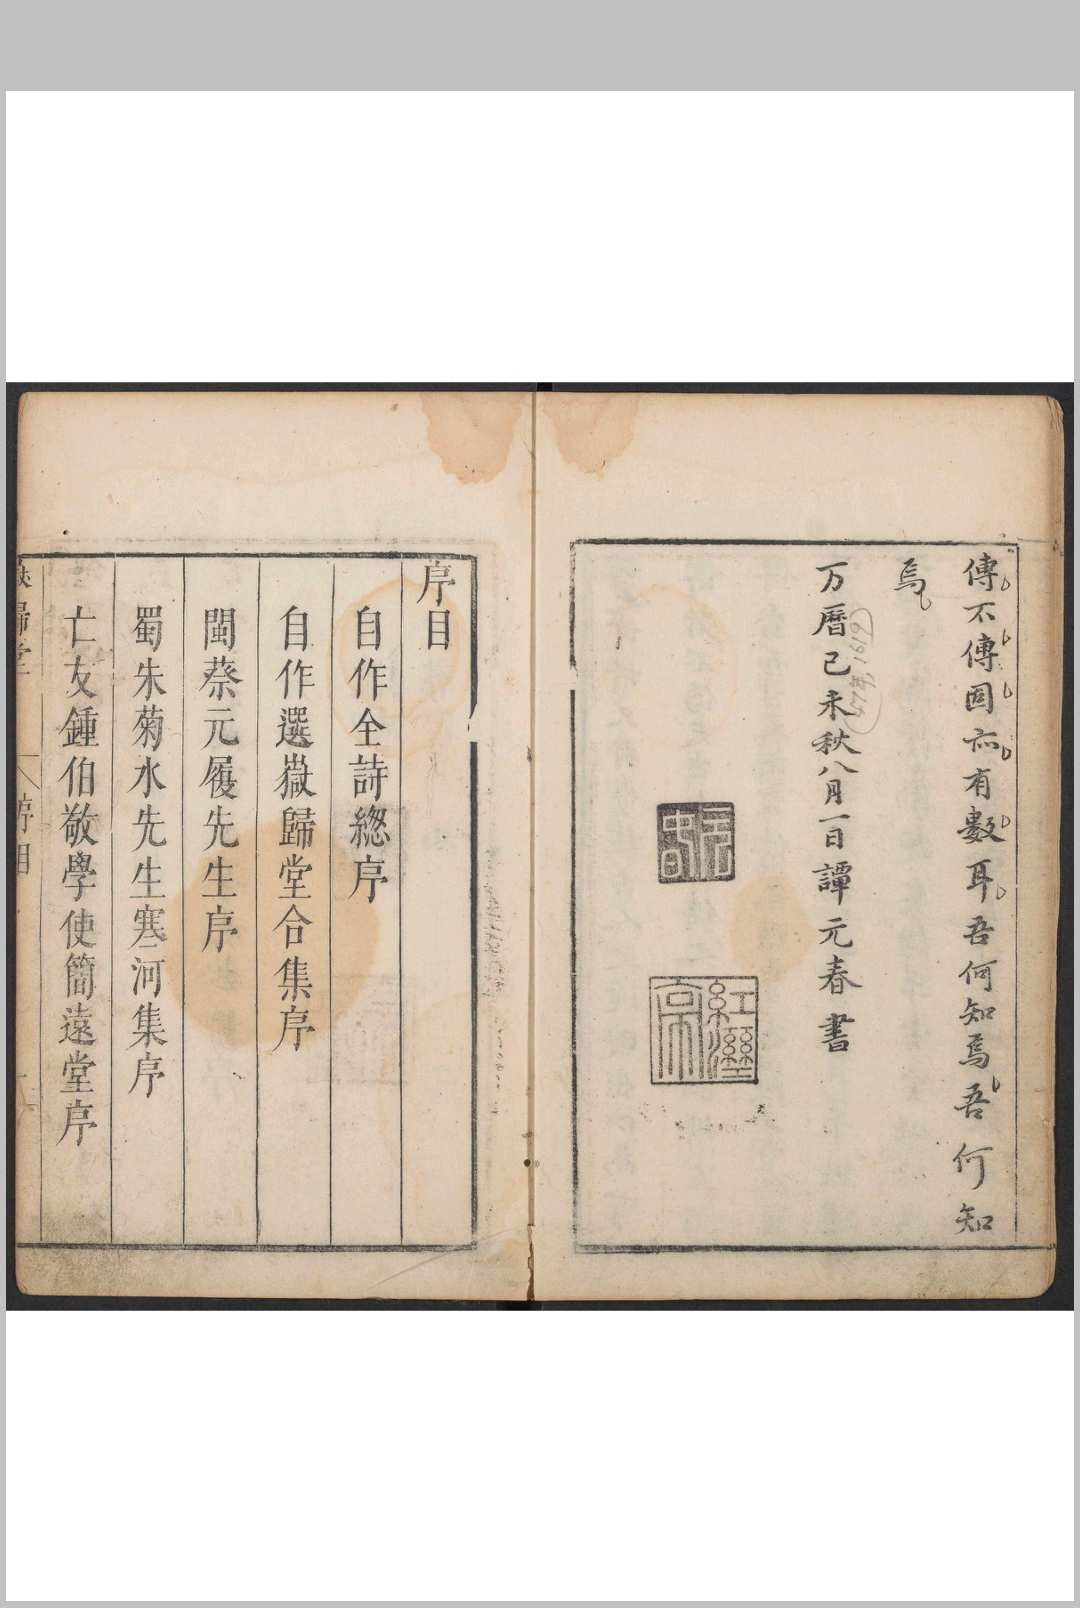 傳不傳固亦有數耳吾何知焉吾何知
焉
万曆己未秋八月一日譚元春書
47年 1619
序目
自作全詩總序
自作選嶽歸堂合集序
閩蔡元履先生序
蜀朱菊水先生寒河集序
亡友鍾伯敬學使簡遠堂序